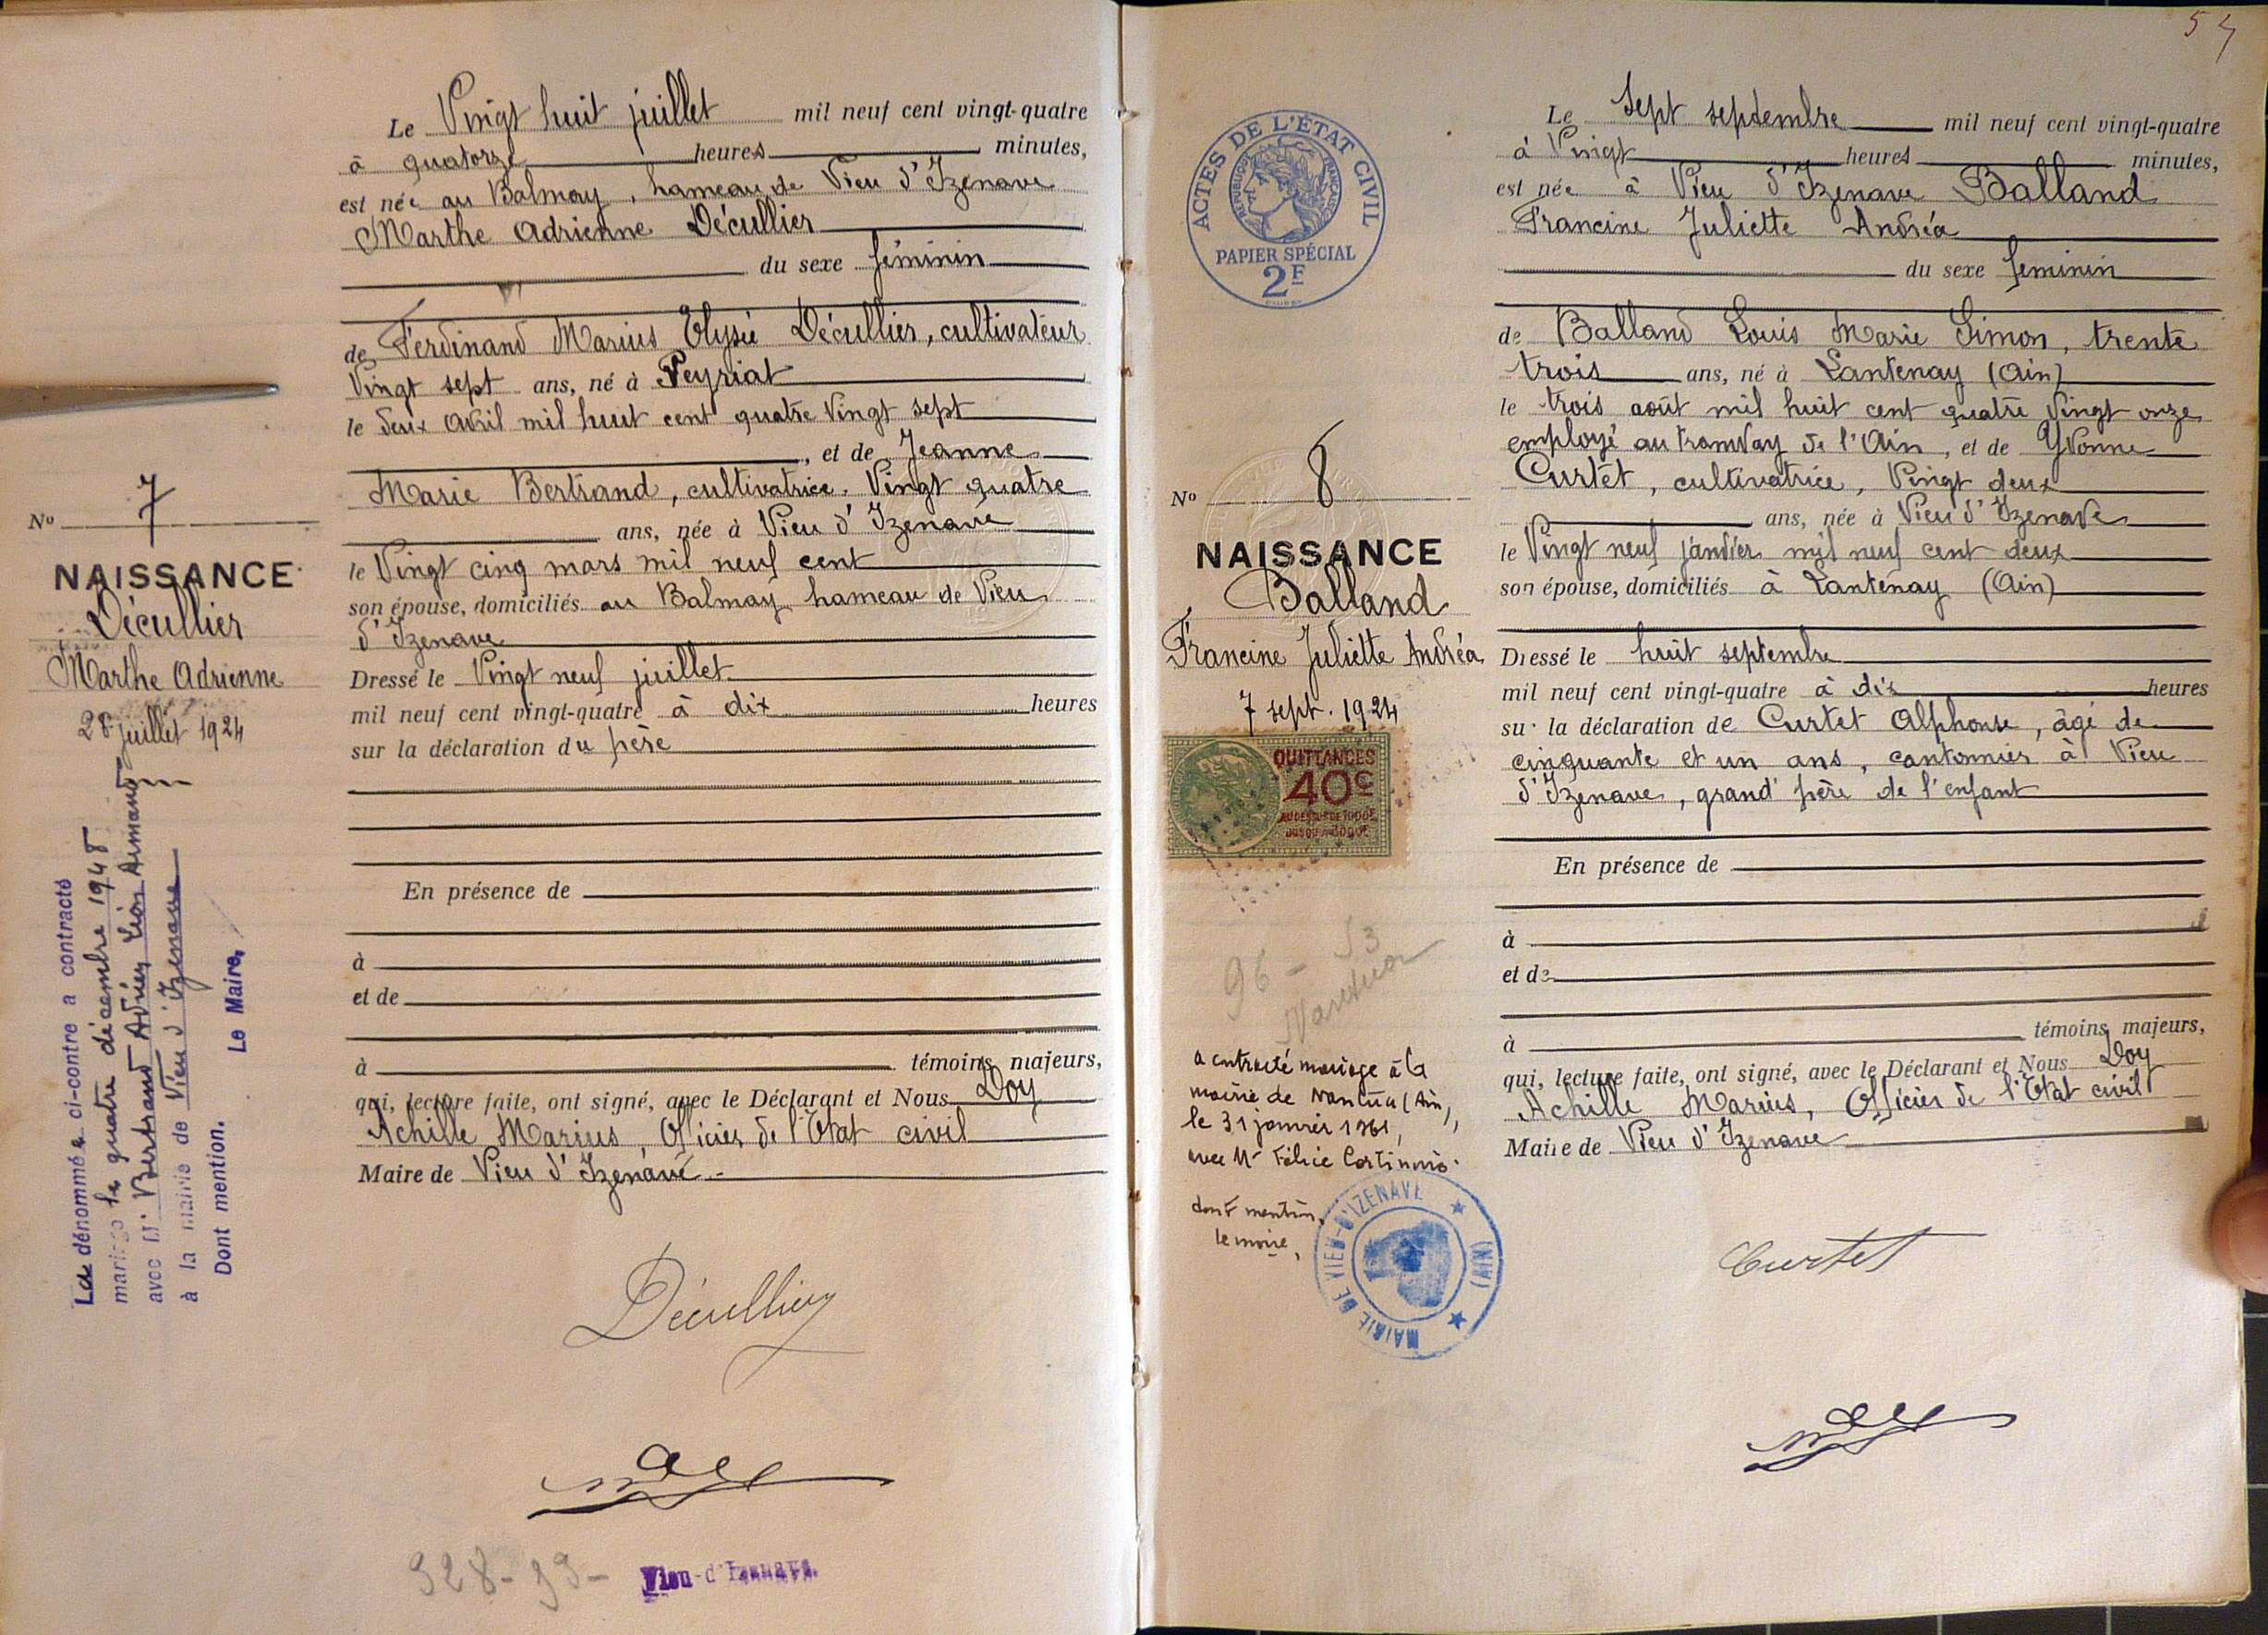 Le Vingt huit juillet mil neuf cent vingt-quatre
à quatorze heures minutes,
est née au Balmay, hameau de Vieu d'Izenave
Marthe Adrienne Décullier
du sexe féminin
de Ferdinand Marius Elysée Décullier, cultivateur
Vingt sept ans, né à Peyriat
le deux avril mil huit cent quatre vingt sept
, et de Jeanne
Marie Bertrand, cultivatrice. Vingt quatre
ans, née à Vieu d'Izenave
le Vingt cinq mars mil neuf cent
son épouse, domiciliés au Balmay, hameau de Vieu
d'Izenave
Dressé le Vingt neuf juillet
mil neuf cent vingt-quatre à dix heures
sur la déclaration du père
En présence de
à
et de
à témoins majeurs,
qui, lecture faite, ont signé, avec le Déclarant et Nous Doy
Achille Marius, Officier de l'Etat civil
Maire de Vieu d'Izenave
Décullier
328-
Vieu-d'Izenave
No 7
NAISSANCE
Décullier
Marthe Adrienne
28 juillet 1924
La dénommée ci-contre a contracté
mariage le quatre décembre 1948
avec Mr Bertrand Adrien Léon Armand
à la mairie de Vieu d'Izenave
Dont mention. Le Maire,
54
ACTES DE L'ÉTAT CIVIL
RÉPUBLIQUE FRANÇAISE
PAPIER SPÉCIAL
2F
No 8
NAISSANCE
Balland
Francine Juliette Andréa
7 sept. 1924
QUITTANCES
40c
AU DESSUS DE 1000F
JUSQU'A 3000F
96 - 53
Nantua
a contracté mariage à la
mairie de Nantua (Ain),
le 31 janvier 1961,
avec Mr Félice
dont mention,
le maire,
MAIRIE DE VIEU-D'IZENAVE (AIN)
Le Sept septembre mil neuf cent vingt-quatre
à Vingt heures minutes,
est née à Vieu d'Izenave Balland
Francine Juliette Andréa
du sexe féminin
de Balland Louis Marie Simon, trente
trois ans, né à Lantenay (Ain)
le trois août mil huit cent quatre vingt onze
employé au tramway de l'Ain, et de Yvonne
Curtet, cultivatrice, Vingt deux
ans, née à Vieu d'Izenave
le Vingt neuf janvier mil neuf cent deux
son épouse, domiciliés à Lantenay (Ain)
Dressé le huit septembre
mil neuf cent vingt-quatre à dix heures
sur la déclaration de Curtet Alphonse, âgé de
cinquante et un ans, cantonnier à Vieu
d'Izenave, grand'père de l'enfant
En présence de
à
et de
à témoins majeurs,
qui, lecture faite, ont signé, avec le Déclarant et Nous Doy
Achille Marius, Officier de l'Etat civil
Maire de Vieu d'Izenave
Curtet